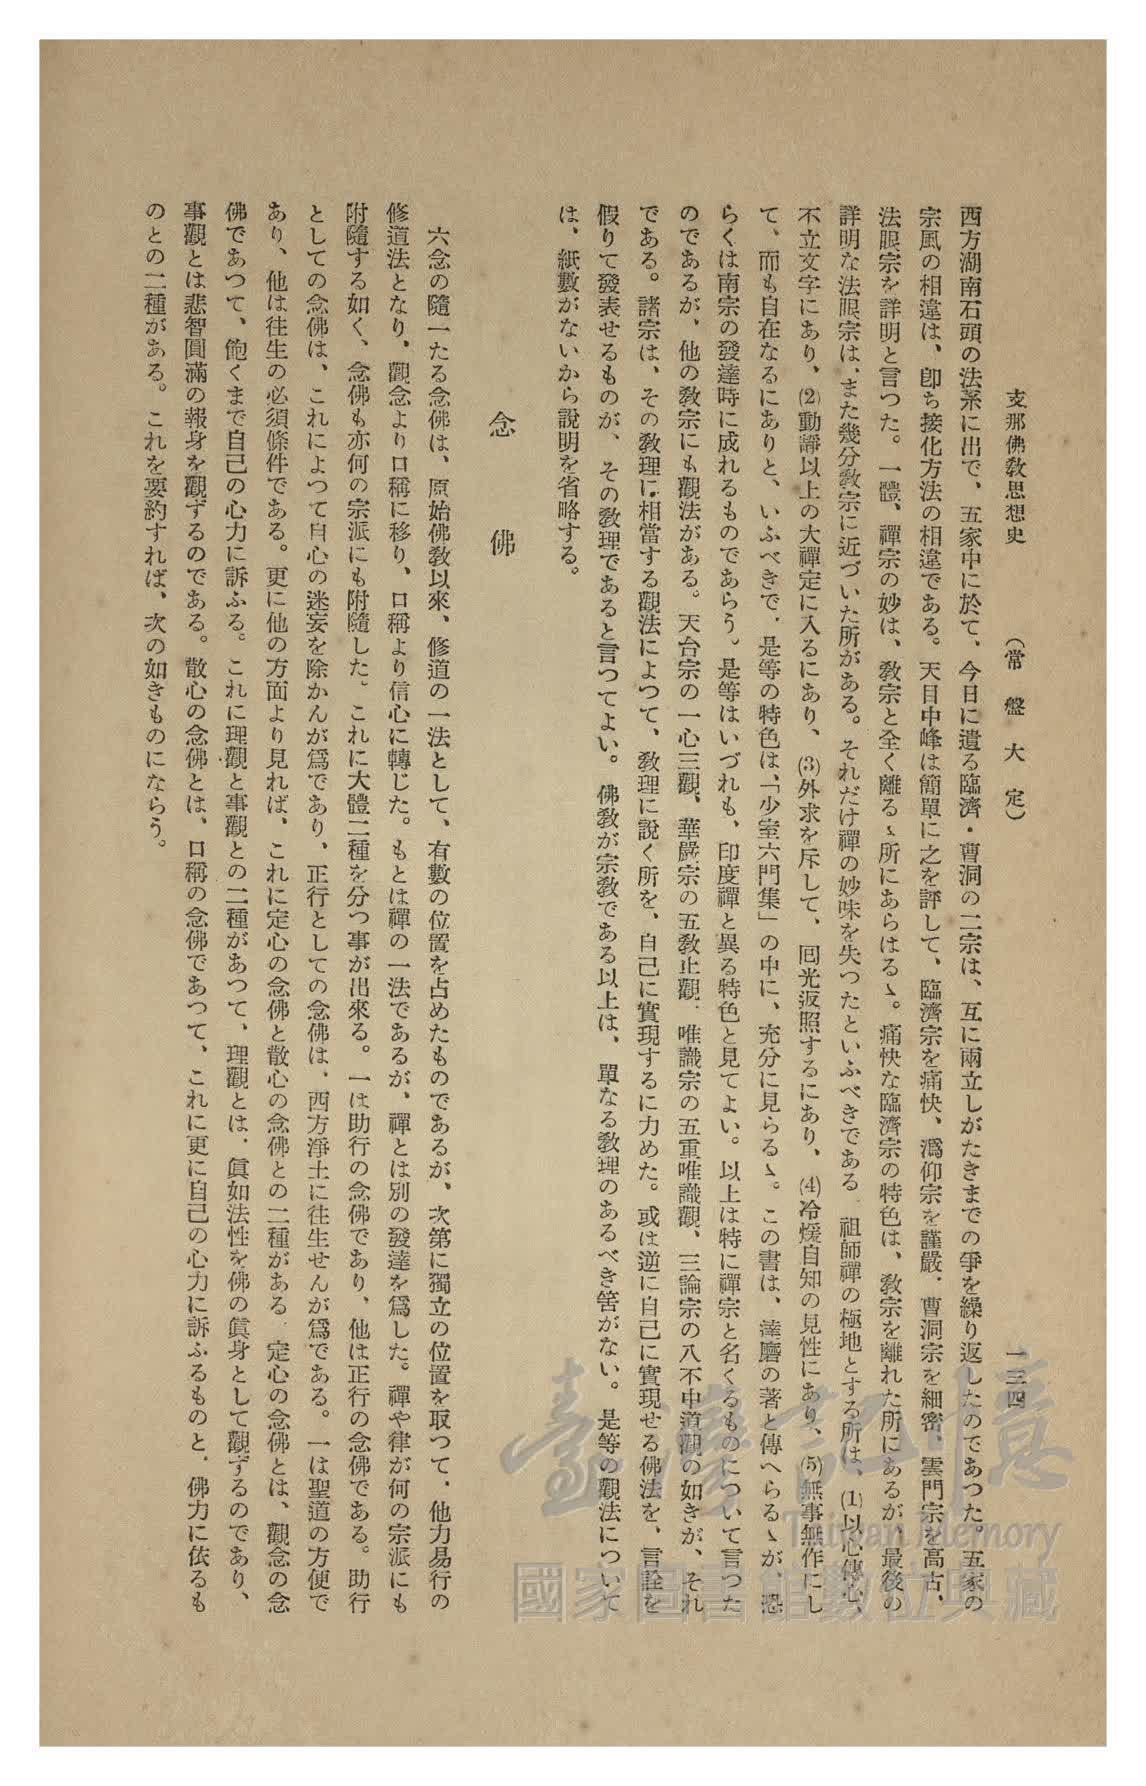 支那佛敎思想史　（常盤大定）　一三四
西方湖南石頭の法系に出で、五家中に於て、今日に遺る臨濟・曹洞の二宗は、互に兩立しがたきまでの爭を繰り返したのであつた。五家の
宗風の相違は、卽ち接化方法の相違である。天目中峰は簡單に之を評して、臨濟宗を痛快、潙仰宗を謹嚴、曹洞宗を細密、雲門宗を高古、
法眼宗を詳明と言つた。一體、禪宗の妙は、敎宗と全く離るゝ所にあらはるゝ。痛快な臨濟宗の特色は、敎宗を離れた所にあるが、最後の
詳明な法眼宗は、また幾分敎宗に近づいた所がある。それだけ禪の妙味を失つたといふべきである。祖師禪の極地とする所は、(1)以心傳心、
不立文字にあり、(2)動靜以上の大禪定に入るにあり、(3)外求を斥して、囘光返照するにあり、(4)冷煖自知の見性にあり、(5)無事無作にし
て、而も自在なるにありと、いふべきで、是等の特色は、「少室六門集」の中に、充分に見らるゝ。この書は、達磨の著と傳へらるゝが、恐
らくは南宗の發達時に成れるものであらう。是等はいづれも、印度禪と異る特色と見てよい。以上は特に禪宗と名くるものについて言つた
のであるが、他の敎宗にも觀法がある。天台宗の一心三觀、華嚴宗の五敎止觀、唯識宗の五重唯識觀、三論宗の八不中道觀の如きが、それ
である。諸宗は、その敎理に相當する觀法によつて、敎理に說く所を、自己に實現するに力めた。或は逆に自己に實現せる佛法を、言詮を
假りて發表せるものが、その敎理であると言つてよい。佛敎が宗敎である以上は、單なる敎理のあるべき筈がない。是等の觀法について
は、紙數がないから說明を省略する。
念佛
六念の隨一たる念佛は、原始佛敎以來、修道の一法として、有數の位置を占めたものであるが、次第に獨立の位置を取つて、他力易行の
修道法となり、觀念より口稱に移り、口稱より信心に轉じた。もとは禪の一法であるが、禪とは別の發達を爲した。禪や律が何の宗派にも
附隨する如く、念佛も亦何の宗派にも附隨した。これに大體二種を分つ事が出來る。一は助行の念佛であり、他は正行の念佛である。助行
としての念佛は、これによつて自心の迷妄を除かんが爲であり、正行としての念佛は、西方淨土に往生せんが爲である。一は聖道の方便で
あり、他は往生の必須條件である。更に他の方面より見れば、これに定心の念佛と散心の念佛との二種がある。定心の念佛とは、觀念の念
佛であつて、飽くまで自己の心力に訴ふる。これに理觀と事觀との二種があつて、理觀とは、眞如法性を佛の眞身として觀ずるのであり、
事觀とは悲智圓滿の報身を觀ずるのである。散心の念佛とは、口稱の念佛であつて、これに更に自己の心力に訴ふるものと、佛力に依るも
のとの二種がある。これを要約すれば、次の如きものにならう。
臺灣記憶
Taiwan Memory
國家圖書館數位典藏